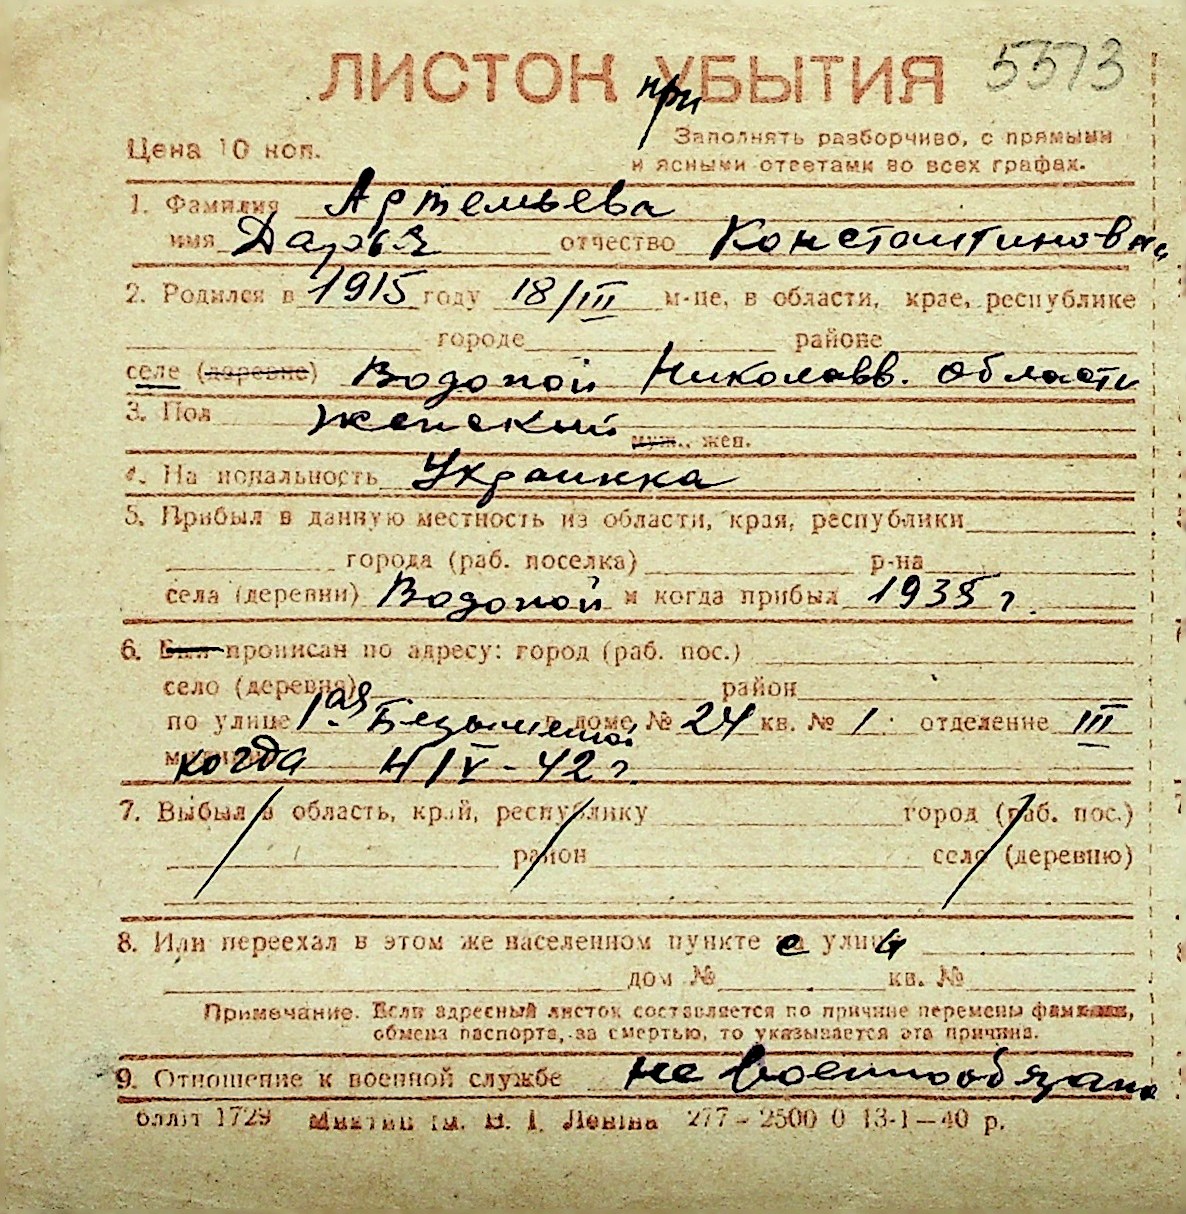 ЛИСТОК УБЫТИЯ 5573
при
Цена 10 коп.
Заполнять разборчиво, с прямыми
и ясными ответами во всех графах.
1. Фамилия Артемьева
имя Дарья отчество Константиновна
2. Родился в 1915 году 18/III м-це, в области, крае, республике
городе районе
селе (деревне) Водопой Николаевв. области
3. Пол женский муж., жен.
4. Национальность Украинка
5. Прибыл в данную местность из области, края, республики
города (раб. поселка) р-на
села (деревни) Водопой и когда прибыл 1935 г.
6. Был прописан по адресу: город (раб. пос.)
село (деревня) район
по улице 1ая Безымений в доме № 24 кв. № 1 отделение III
когда IV-42 г.
7. Выбыл в область, край, республику город (раб. пос.)
район село (деревню)
8. Или переехал в этом же населенном пункте с улицы
дом № кв. №
Примечание. Если адресный листок составляется по причине перемены фамилии,
обмена паспорта, за смертью, то указывается эта причина.
9. Отношение к военной службе не военнообязан
1729 ім. В. І. Леніна 277 – 2500 0 13-1–40 р.